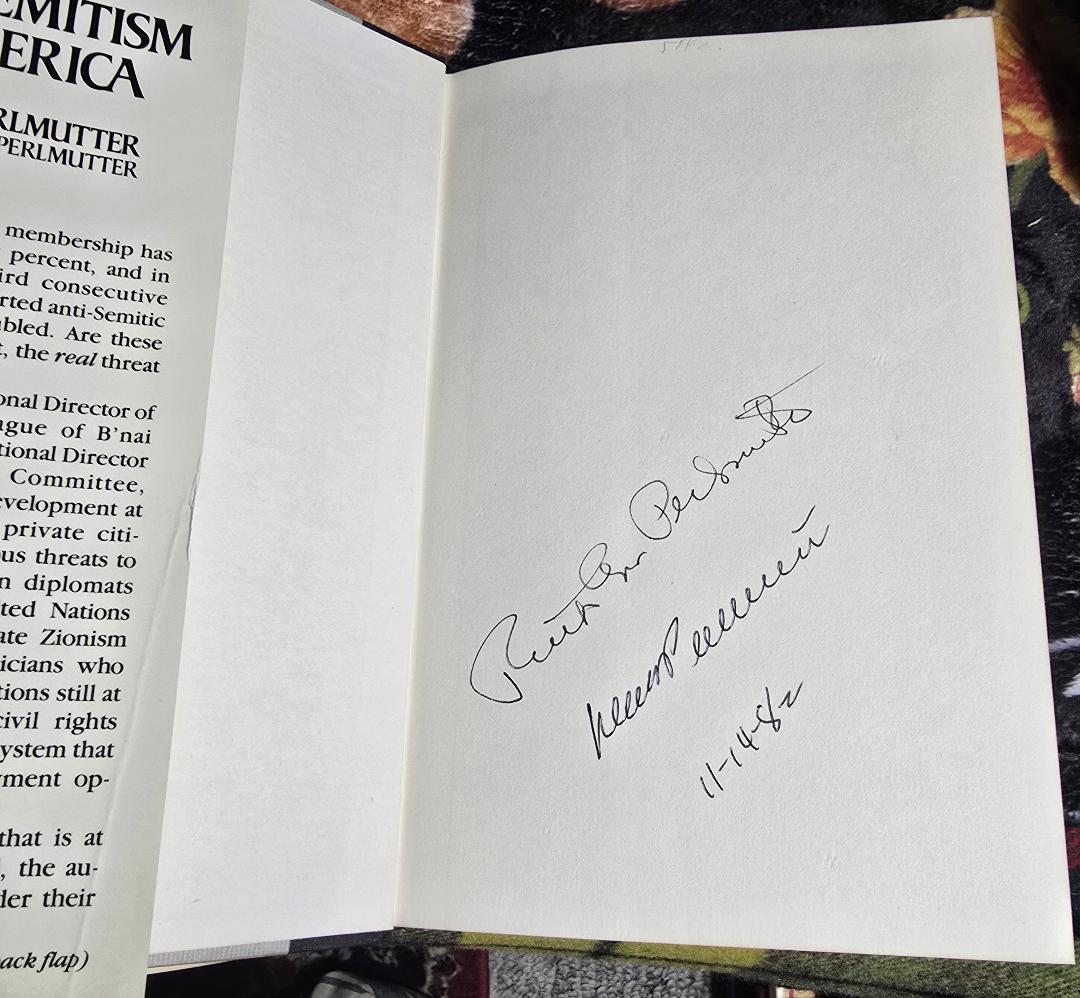 EMITISM
ERICA
RLMUTTER
PERLMUTTER
membership has
percent, and in
ird consecutive
rted anti-Semitic
bled. Are these
, the real threat
onal Director of
gue of B'nai
tional Director
Committee,
evelopment at
private citi-
us threats to
n diplomats
ted Nations
ate Zionism
icians who
tions still at
civil rights
ystem that
ment op-
that is at
, the au-
der their
ack flap)
Ruth Ann Perlmutter
Perlmutter
11-14-82